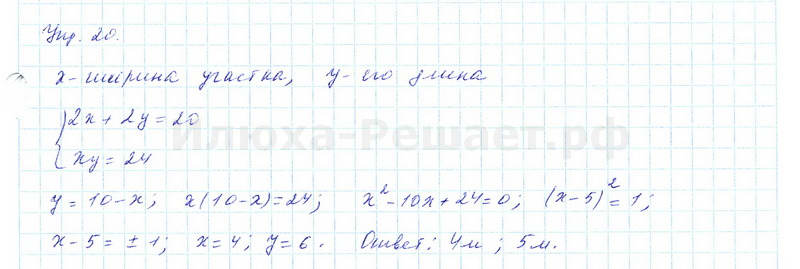 Упр. 20.
x - ширина участка, y - его длина
2x + 2y = 20
Илюха-Решает.рф
xy = 24
y = 10 - x; x(10-x) = 24; x² - 10x + 24 = 0; (x-5)² = 1;
x - 5 = ± 1; x = 4; y = 6. Ответ: 4м; 5м.